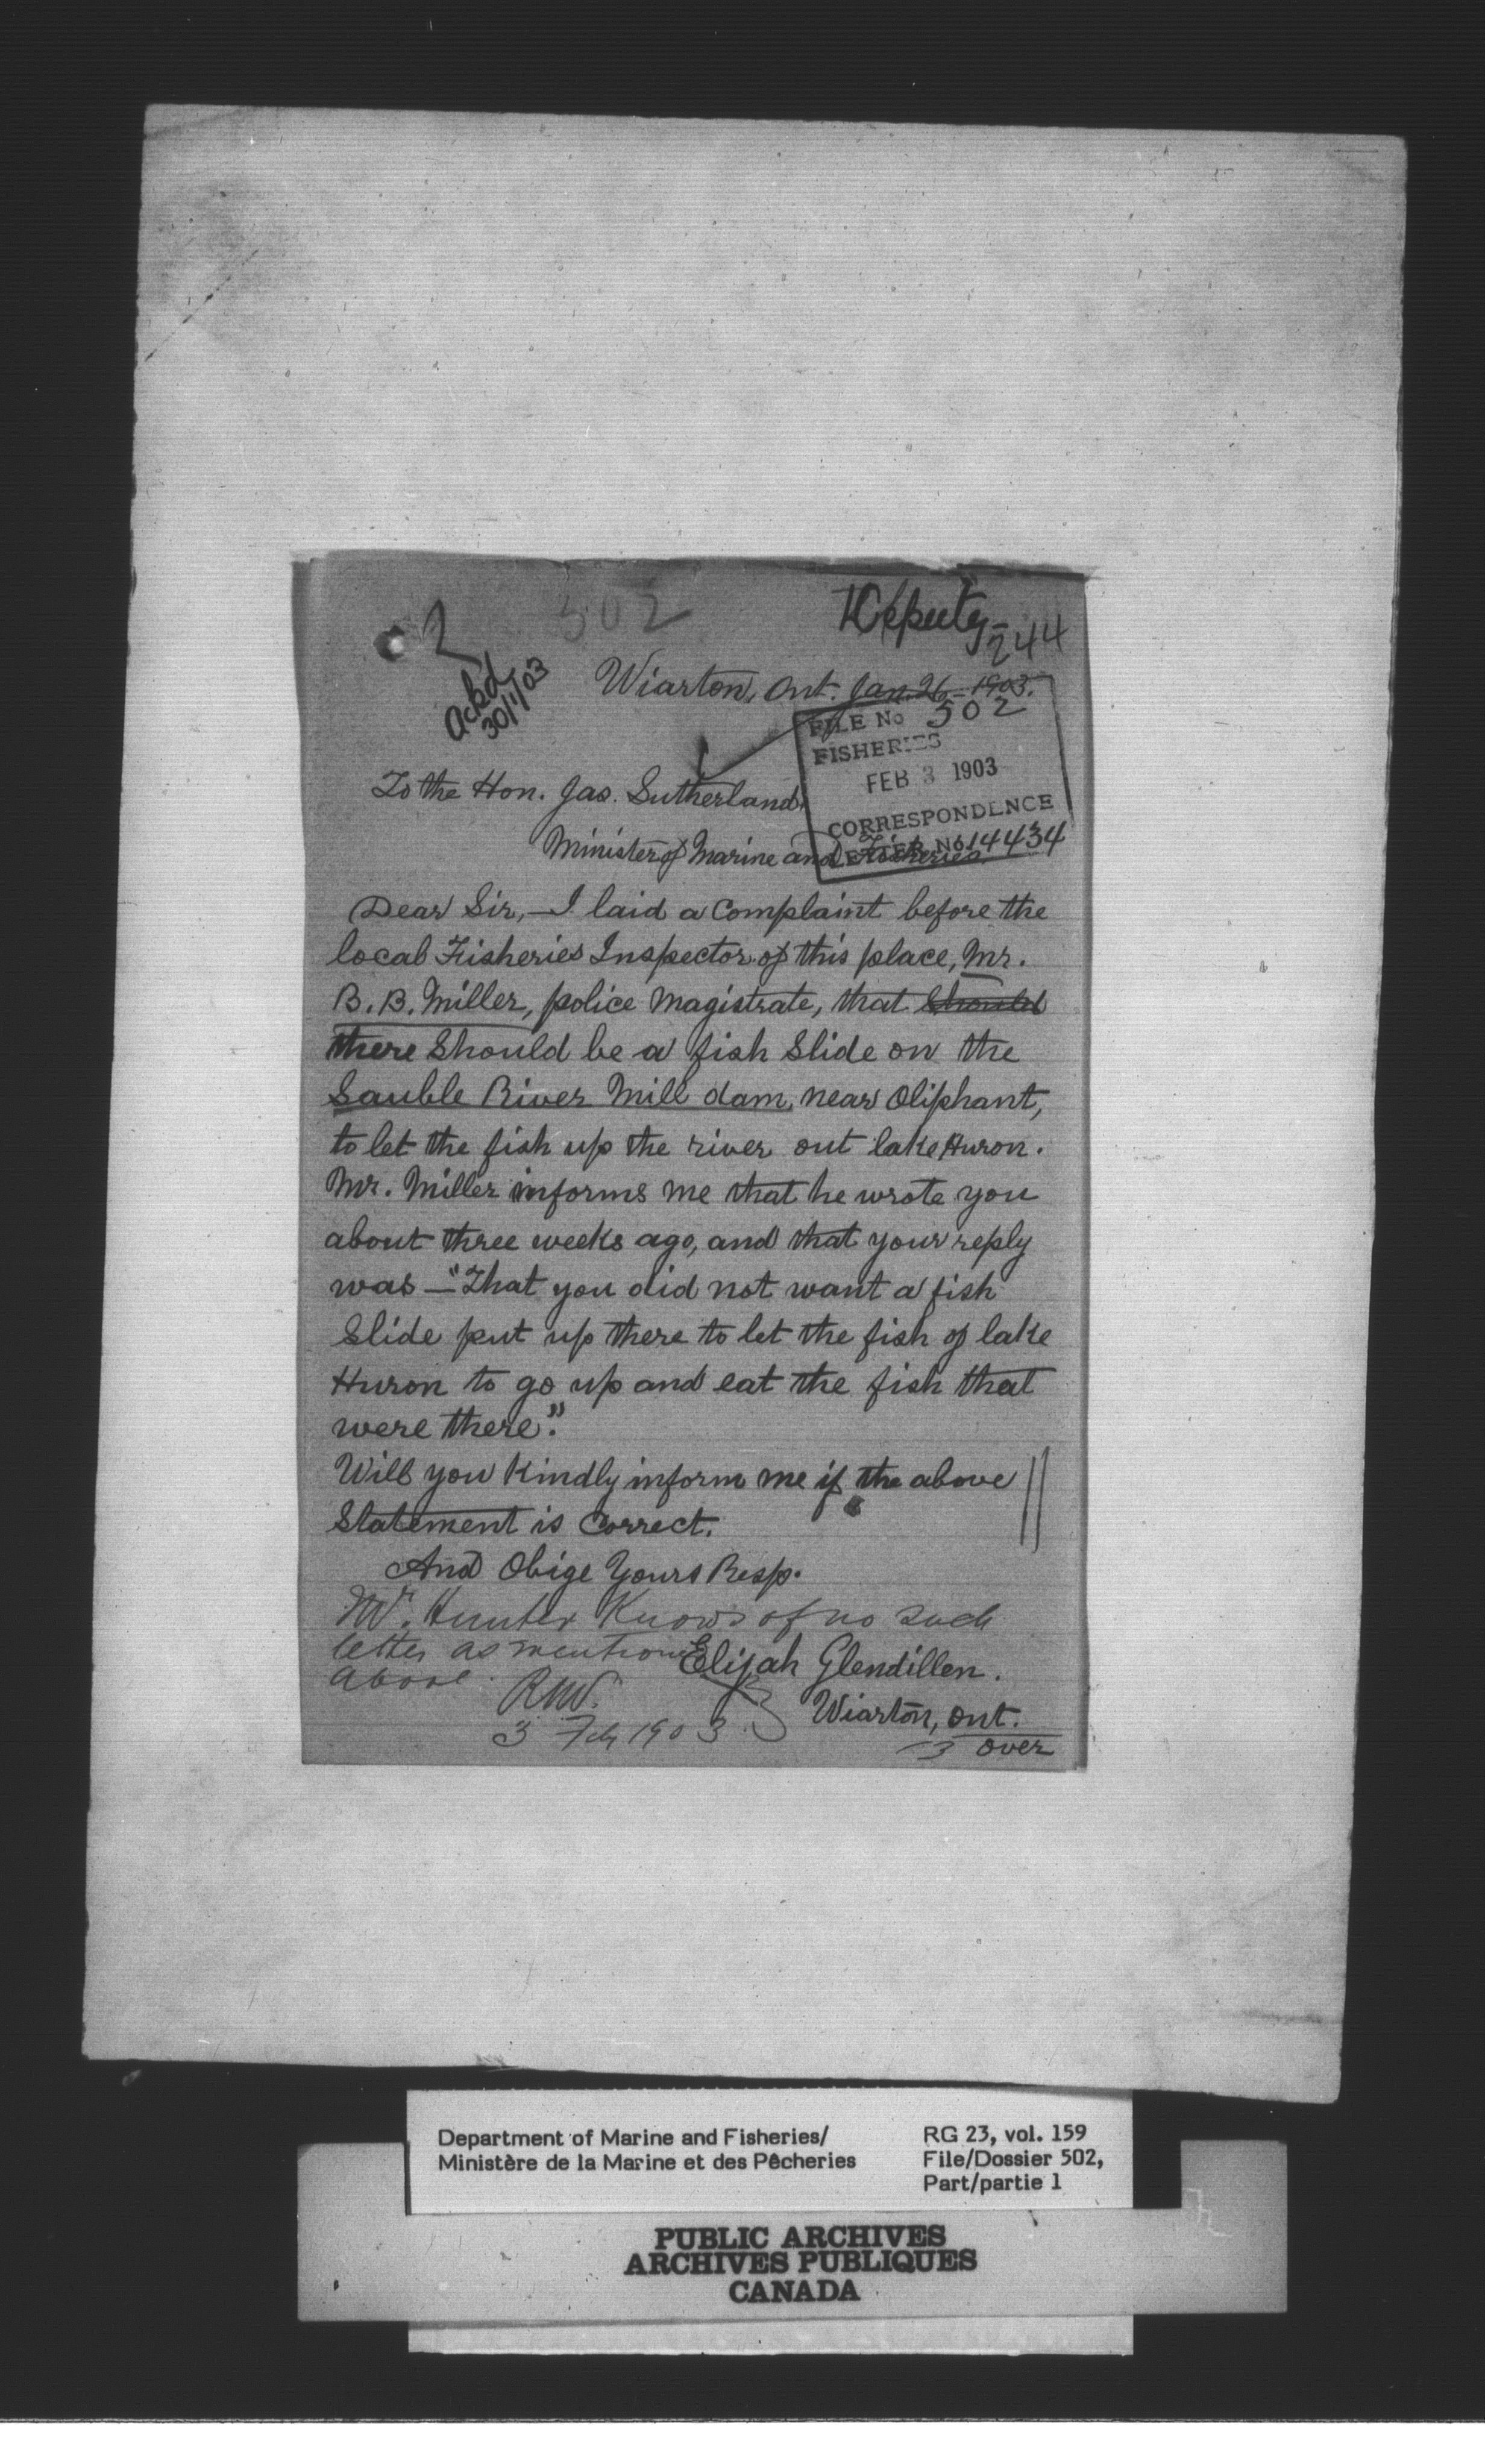 502
Deputy
244
Ackd
30/1/03
Wiarton, Ont. Jan. 26 - 1903.
FILE No 502
FISHERIES
FEB 3 1903
CORRESPONDENCE
LETTER No 14434
To the Hon. Jas. Sutherland,
Minister of Marine and Fisheries.
Dear Sir, — I laid a Complaint before the
local Fisheries Inspector of this place, Mr.
B. B. Miller, police Magistrate, that should
there Should be a fish Slide on the
Sauble River Mill dam, near Oliphant,
to let the fish up the river out lake Huron.
Mr. Miller informs me that he wrote you
about three weeks ago, and that your reply
was — "That you did not want a fish
Slide put up there to let the fish of lake
Huron to go up and eat the fish that
were there."
Will you Kindly inform me if the above
Statement is Correct.
And Obige Yours Resp.
Mr. Hunter Knows of no such
letter as mentioned
above.
Elijah Glendillen.
Wiarton, Ont.
3 Feb 1903
over
Department of Marine and Fisheries/
Ministère de la Marine et des Pêcheries
RG 23, vol. 159
File/Dossier 502,
Part/partie 1
PUBLIC ARCHIVES
ARCHIVES PUBLIQUES
CANADA